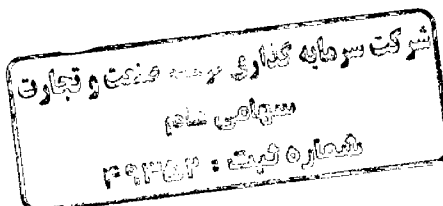 شرکت سرمایه گذاری توسعه صنعت و تجارت
سهامی عام
شماره ثبت :